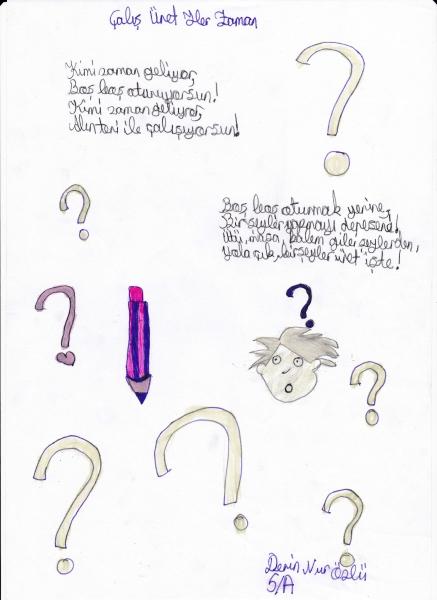 Çalış Üret Her Zaman
Kimi zaman geliyor,
Boş boş oturuyorsun!
Kimi zaman geliyor,
Alın teri ile çalışıyorsun!
Boş boş oturmak yerine,
Bir şeyler yapmayı denesene!
masa, kalem gibi şeylerden,
Yola çık, bir şeyler üret işte!
Derin Nur Özlü
5/A